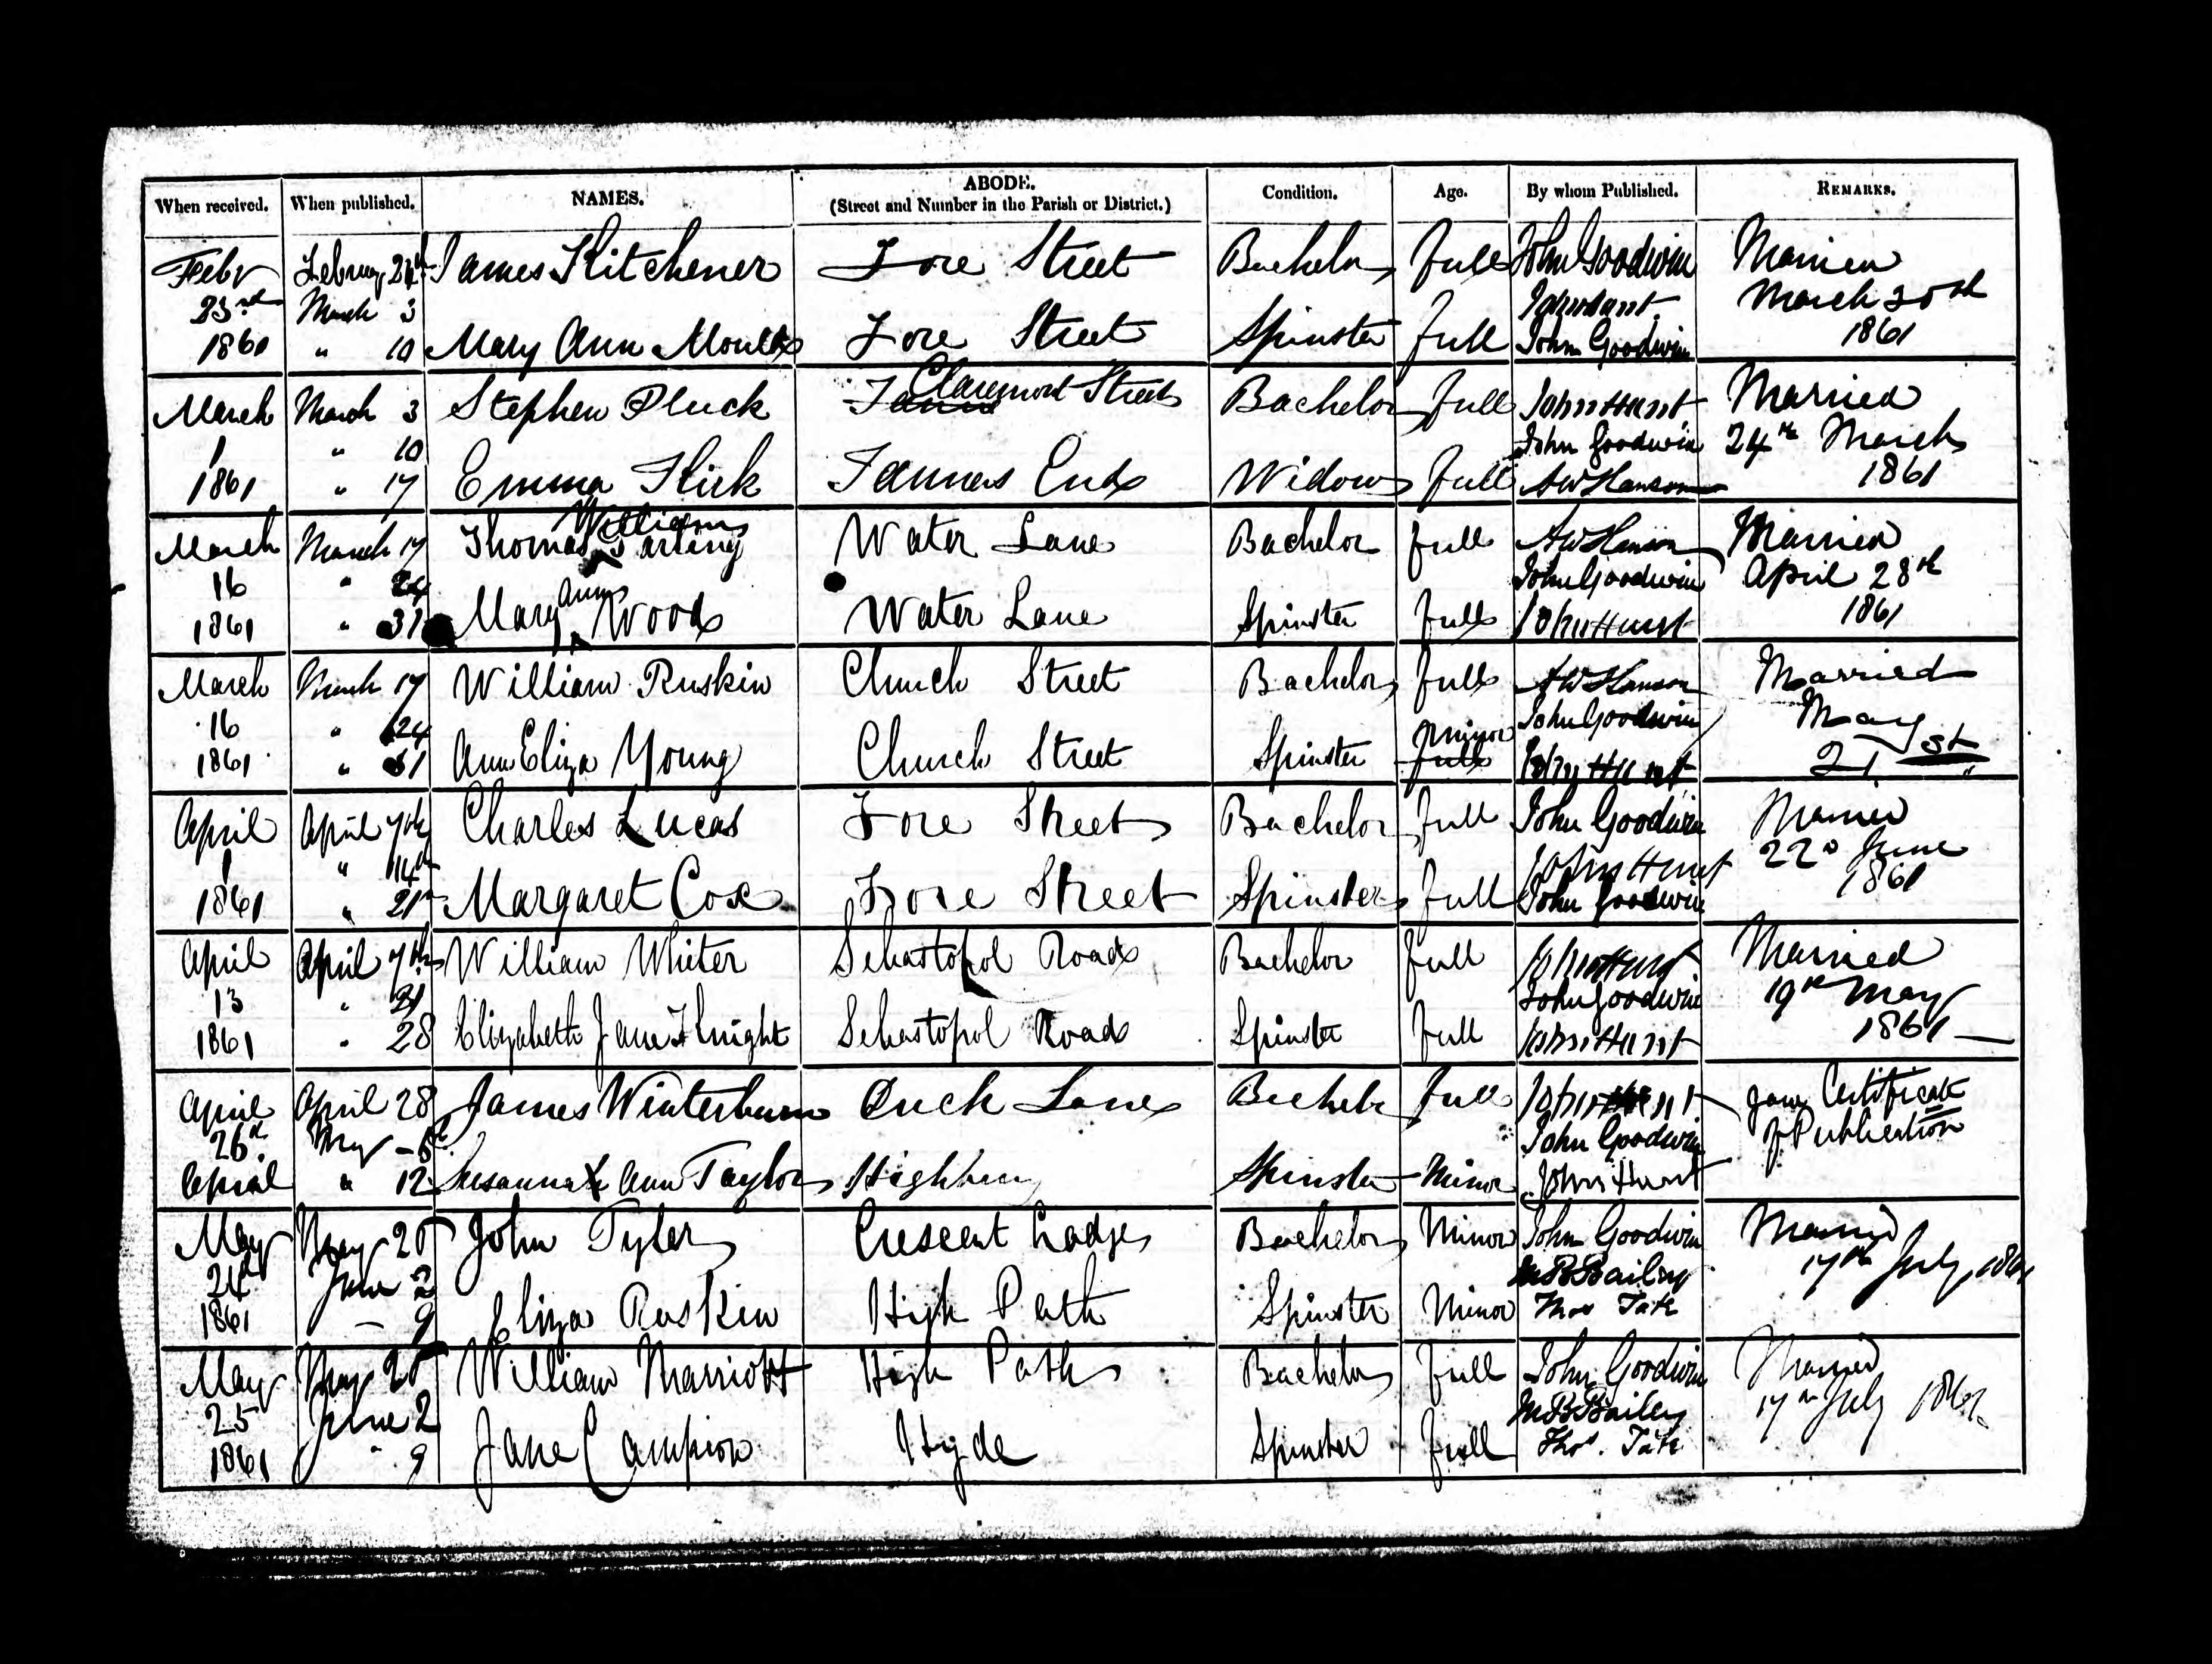 When received. When published. NAMES. ABODE. (Street and Number in the Parish or District.) Condition. Age. By whom Published. REMARKS.
Febr 24th James Kitchener Fore Street Bachelor full John Goodwin Married
23rd March 3 John Hunt March
1861 " 10 Mary Ann Fore Street Spinster full John Goodwin 1861
March March 3 Stephen Pluck Claremont Street Bachelor full John Hunt Married
1 " 10 John Goodwin 24th March
1861 " 17 Emma Flick Tanners End Widow full AW Hanson 1861
March March 17 Thomas William Water Lane Bachelor full AW Hanson Married
16 " 24 John Goodwin April 28th
1861 " 31 Mary Ann Wood Water Lane Spinster full John Hunt 1861
March March 17 William Ruskin Church Street Bachelor full AW Hanson Married
16 " 24 minor John Goodwin May
1861 " 31 Ann Eliza Young Church Street Spinster full John Hunt 21st
April April 7th Charles Lucas Fore Street Bachelor full John Goodwin Married
1 " 14th John Hunt 22d June
1861 " 21st Margaret Cox Fore Street Spinster full John Goodwin 1861
April April 7th William Whiter Sebastopol Road Bachelor full John Hunt Married
13 " 21 John Goodwin 19th May
1861 " 28 Elizabeth Jane Knight Sebastopol Road Spinster full John Hunt 1861
April April 28 James Winterburn Duck Lane Bachelor full John Hunt gave Certificate
26th May John Goodwin of Publication
April " 12 Susannah Ann Taylor Highbury Spinster Minor John Hunt
May May 26 John Tyler Crescent Lodge Bachelor Minor John Goodwin Married
24 June 2 Bailey 17th July, 1861
1861 9 Eliza Ruskin High Path Spinster Minor Thos Tate
May May 26 William Marriott High Path Bachelor full John Goodwin Married
25 June 2 Bailey 17th July 1861
1861 " 9 Jane Campion Hyde Spinster full Thos. Tate